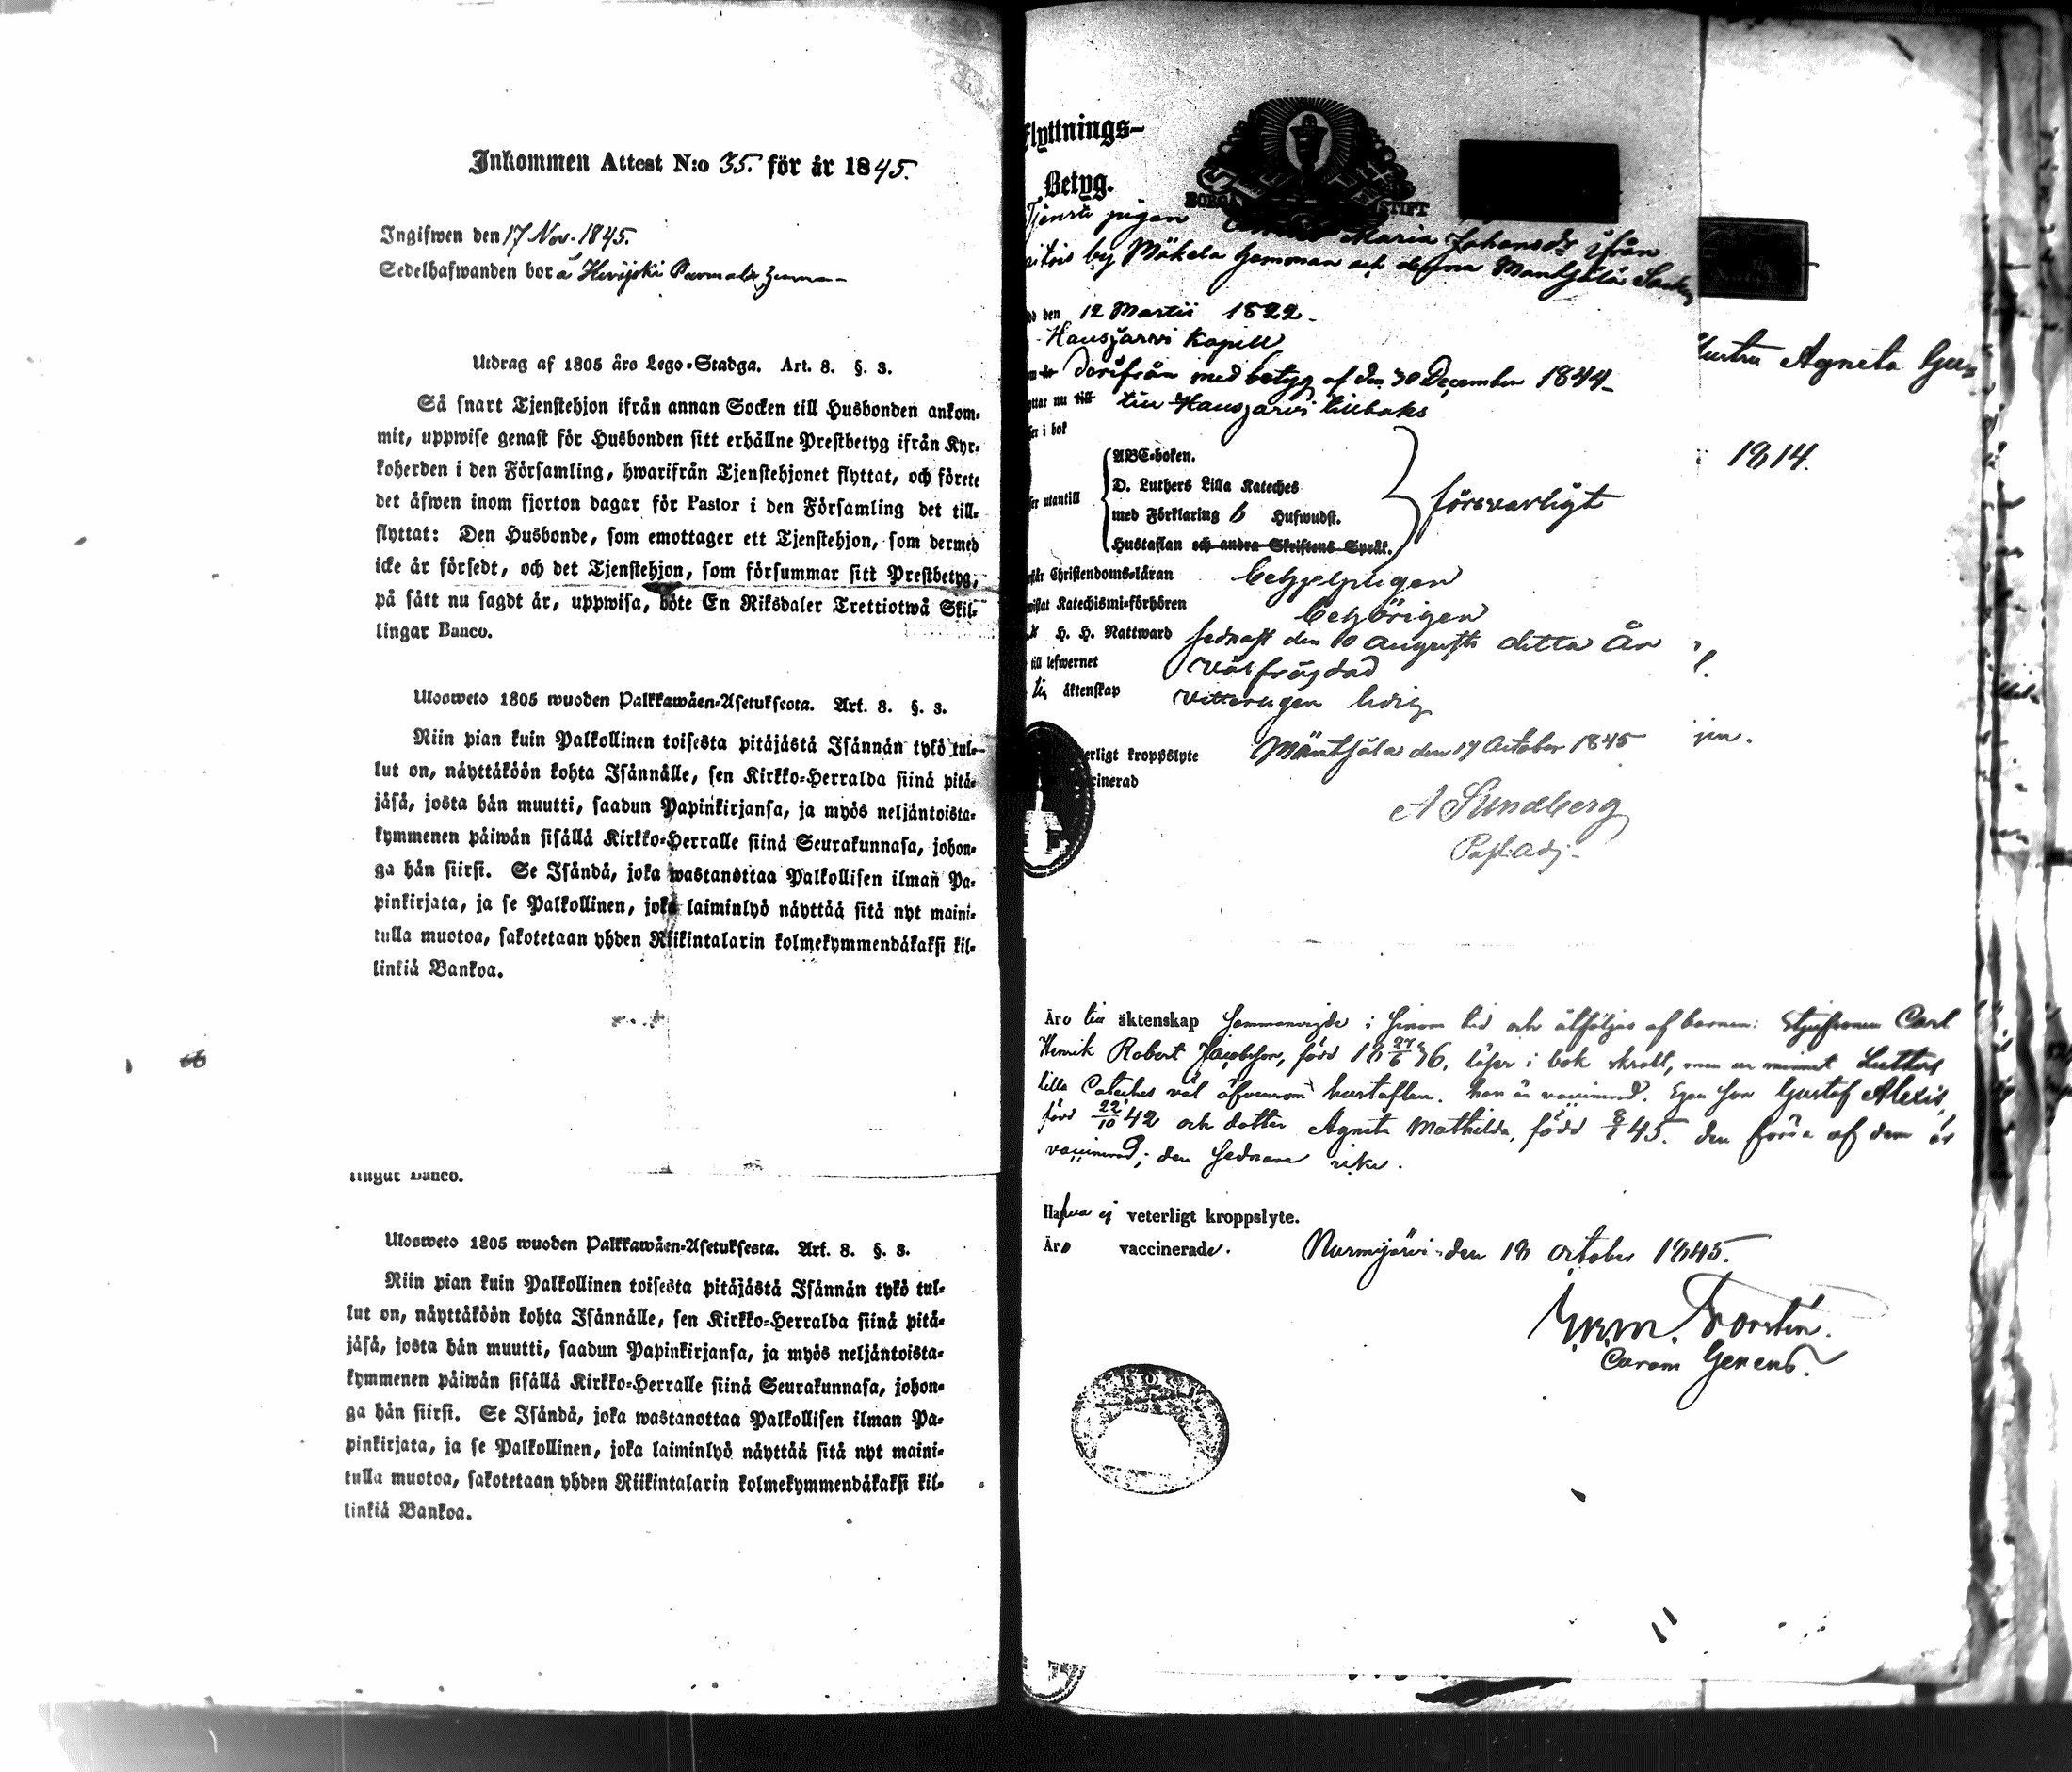 Inkommen Attest N:o 35. för år 1845.
Ingifwen den 17 Nov. 1845.
Sedelhafwanden bor å Hervijoki
Utdrag af 1805 års Lego-Stadga. Art. 8. §. 3.
Så snart Tjenstehjon ifrån annan Socken till Husbonden ankom-
mit, uppwise genast för Husbonden sitt erhållne Prestbetyg ifrån Kyr-
koherden i den Församling, hwarifrån Tjenstehjonet flyttat, och förete
det äfwen inom fjorton dagar för Pastor i den Församling det till-
flyttat: Den Husbonde, som emottager ett Tjenstehjon, som dermed
icke är försedt, och det Tjenstehjon, som försummar sitt Prestbetyg,
på sätt nu sagdt är, uppwisa, böte En Riksdaler Trettiotwå Skil-
lingar Banco.
Ulosweto 1805 wuoden Palkkawäen-Asetuksesta. Art. 8. §. 3.
Niin pian kuin Palkollinen toisesta pitäjästä Isännän tykö tul-
lut on, näyttäköön kohta Isännälle, sen Kirkko-Herralda siinä pitä-
jäsä, josta hän muutti, saadun Papinkirjansa, ja myös neljäntoista-
kymmenen päiwän sisällä Kirkko-Herralle siinä Seurakunnasa, johon-
ga hän siirsi. Se Isändä, joka wastanottaa Palkollisen ilman Pa-
pinkirjata, ja se Palkollinen, joka laiminlyö näyttää sitä nyt maini-
tulla muotoa, sakotetaan yhden Riikintalarin kolmekymmendäkaksi kil-
linkiä Bankoa.
lingar Banco.
Ulosweto 1805 wuoden Palkkawäen-Asetuksesta. Art. 8. §. 3.
Niin pian kuin Palkollinen toisesta pitäjästä Isännän tykö tul-
lut on, näyttäköön kohta Isännälle, sen Kirkko-Herralda siinä pitä-
jäsä, josta hän muutti, saadun Papinkirjansa, ja myös neljäntoista-
kymmenen päiwän sisällä Kirkko-Herralle siinä Seurakunnasa, johon-
ga hän siirsi. Se Isändä, joka wastanottaa Palkollisen ilman Pa-
pinkirjata, ja se Palkollinen, joka laiminlyö näyttää sitä nyt maini-
tulla muotoa, sakotetaan yhden Riikintalarin kolmekymmendäkaksi kil-
linkiä Bankoa.
Flyttnings-
Betyg.
BORGÅ STIFT
Tjenste pigan Maria Johansdr ifrån
by Mäkelä hemman och denna Mäntsälä Socken
den 12 Martii 1822.
Hausjärvi Kapell
derifrån med betyg af den 30 December 1844
flyttar nu till Hausjärvi tillbaks
i bok
utantill
ABC-boken.
D. Luthers Lilla Kateches
med Förklaring 6 Hufwudst.
Hustaflan och andra Skriftens Språk.
försvarligt
Christendoms-läran behjelpligen
Katechismi-förhören behörigen
H. H. Nattward sednast den 10 Augusti detta År
till lefwernet välfrägdad
till äktenskap vitterligen ledig
kroppslyte
Mäntsälä den 17 October 1845
A Sundberg
Past: Adj.
Hustru Agneta
1814.
Äro till äktenskap sammanvigde i sinom tid och åtföljas af barnen: Styfsonen Carl
Henrik Robert Jacobsson, född 18 27/6 36, läser i bok skralt, men ur minnet Luthers
lilla Cateches väl äfvensom hustaflan. han är vaccinerad. Egen son Gustaf Alexis,
född 22/10 42 och dotter Agneta Mathilda, född 8/1 45. den förra af dem är
vaccinerad; den sednare icke.
Hafva ej veterligt kroppslyte.
Äro vaccinerade.
Nurmijärvi den 18 october 1845.
Forstén.
Curam Gerens.